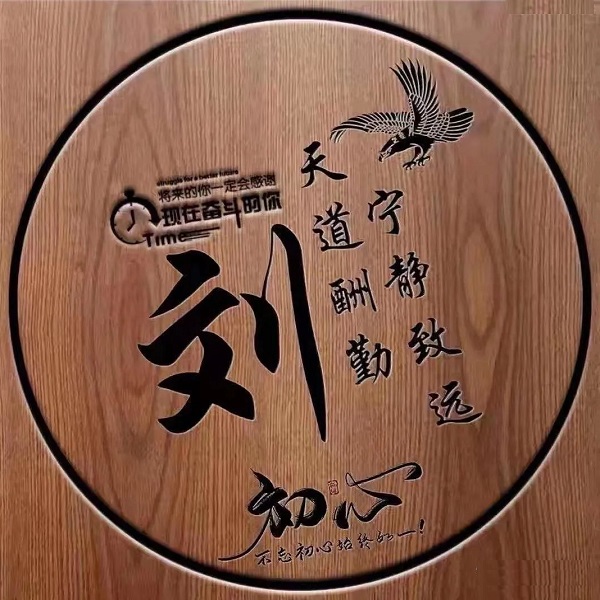 struggle for a better future
将来的你一定会感谢
现在奋斗的你
Time
刘
天道酬勤
宁静致远
初心
不忘初心始终如一!